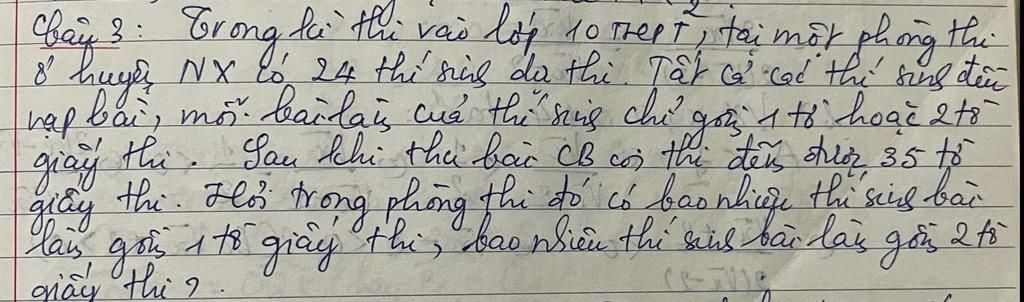 Câu 3: Trong kì thi vào lớp 10 THPT, tại một phòng thi
ở huyện NX có 24 thí sinh dự thi. Tất cả các thí sinh đều
nạp bài, mỗi bài làm của thí sinh chỉ gồm 1 tờ hoặc 2 tờ
giấy thi. Sau khi thu bài CB coi thi đếm được 35 tờ
giấy thi. Hỏi trong phòng thi đó có bao nhiêu thí sinh bài
làm gồm 1 tờ giấy thi, bao nhiêu thí sinh bài làm gồm 2 tờ
giấy thi?